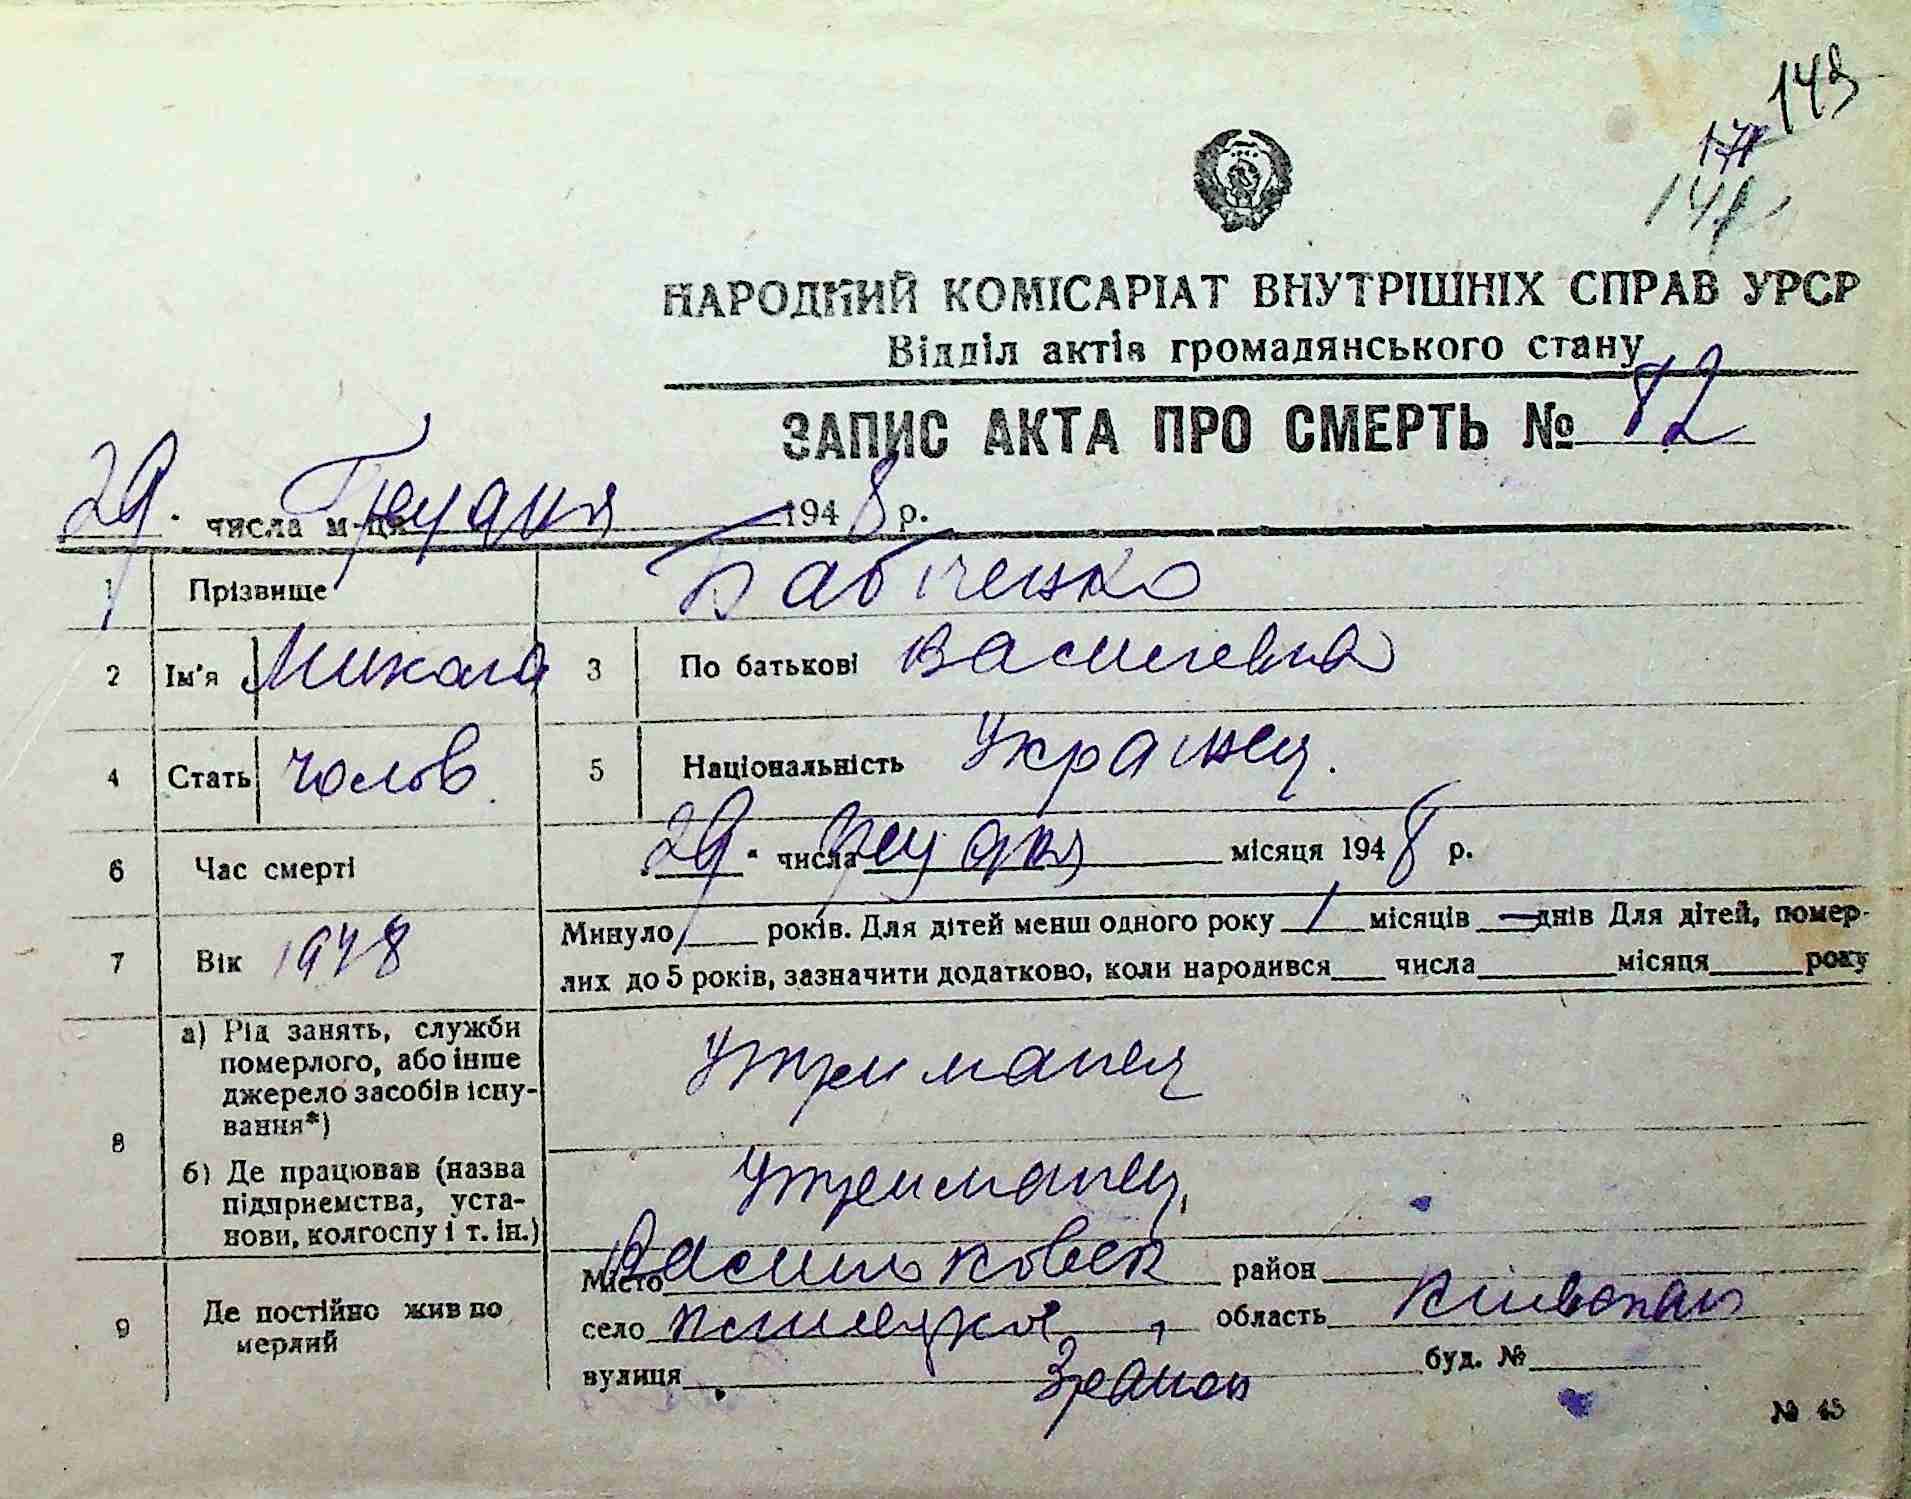 149
НАРОДНИЙ КОМІСАРІАТ ВНУТРІШНІХ СПРАВ УРСР
Відділ актів громадянського стану
ЗАПИС АКТА ПРО СМЕРТЬ № 82
29. числа м-ця Грудня 1948 р.
1 Прізвище Бабіченко
2 Ім'я Микола 3 По батькові
4 Стать чолов 5 Національність Украінец.
6 Час смерті 29. числа грудня місяця 1948 р.
7 Вік 1948 Минуло років. Для дітей менш одного року 1 місяців — днів Для дітей, помер-
лих до 5 років, зазначити додатково, коли народився числа місяця року
8 а) Рід занять, служби
померлого, або інше
джерело засобів існу-
вання*)
Утриманец
б) Де працював (назва
підприємства, уста-
нови, колгоспу і т. ін.)
Утриманец
9 Де постійно жив по
мерлий
Місто район
село область
вулиця буд. №
№ 45